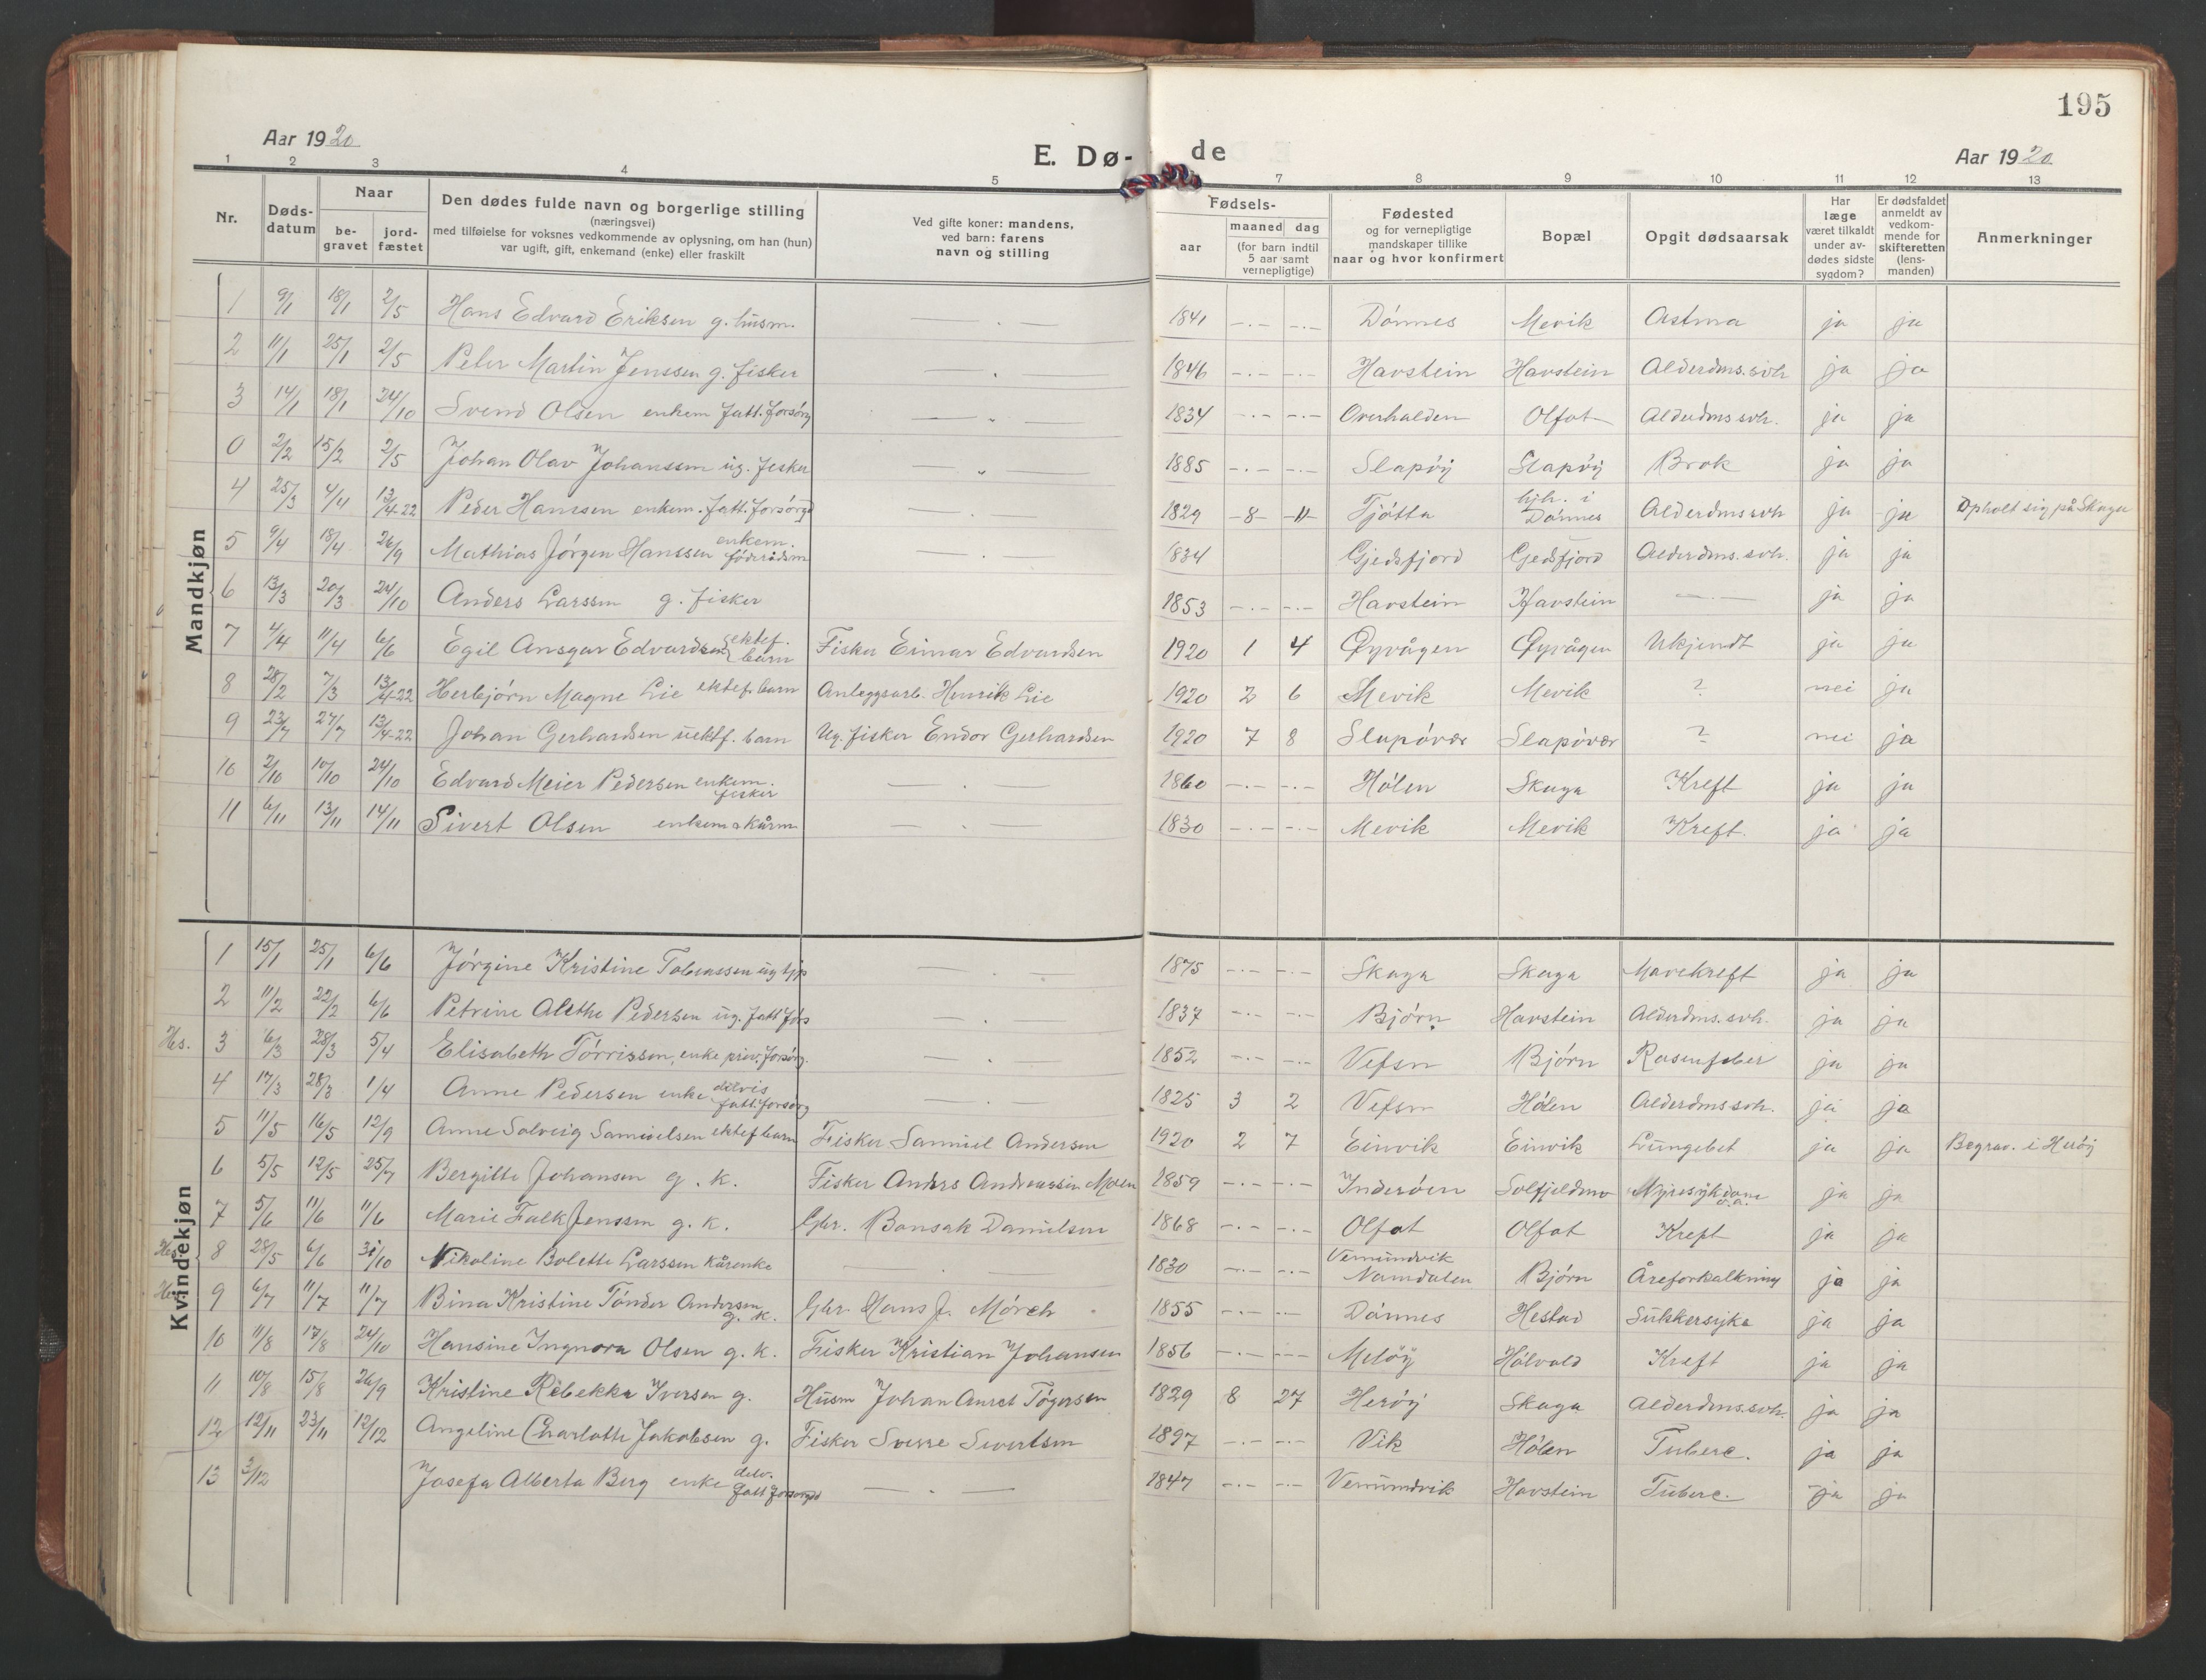 195
Aar 1920
E. Dø- de
Aar 1920
1 2 3 4 5 7 8 9 10 11 12 13
Nr.
Døds-
datum
Naar
be-
gravet
jord-
fæstet
Den dødes fulde navn og borgerlige stilling
(næringsvei)
med tilføielse for voksnes vedkommende av oplysning, om han (hun)
var ugift, gift, enkemand (enke) eller fraskilt
Ved gifte koner: mandens,
ved barn: farens
navn og stilling
Fødsels-
aar
maaned dag
(for barn indtil
5 aar samt
vernepligtige)
Fødested
og for vernepligtige
mandskaper tillike
naar og hvor konfirmert
Bopæl
Opgit dødsaarsak
Har
læge
været tilkaldt
under av-
dødes sidste
sygdom?
Er dødsfaldet
anmeldt av
vedkom-
mende for
skifteretten
(lens-
manden)
Anmerkninger
Mandkjøn
1 9/1 18/1 2/5 Hans Edvard Eriksen g. husm. — . — 1841 -.- -.- Dønnes Mevik Astma ja ja
2 11/1 25/1 2/5 Peter Martin Jenssen g. fisker — . — 1846 -.- -.- Havstein Havstein Alderdms.svh ja ja
3 14/1 18/1 24/10 Svend Olsen enkem fatt.forsørg — " — 1834 -.- -.- Overhalden Olfot Alderdmssvh. ja ja
0 2/2 15/2 2/5 Johan Olav Johanssen ug. fisker — " — 1885 -.- -.- Slapøy Slapøy Brok ja ja
4 25/3 4/4 13/4-22 Peder Hanssen enkem. fatt.forsørgd — . — 1829 -8- -11- Tjøtta hjh. i Dønnes Alderdmssvh ja ja Opholt sig på Skaga
5 9/4 18/4 26/9 Mathias Jørgen Hanssen enkem. føderådsm — . — 1834 Gjedsfjord Gjedsfjord Alderdms.svh. ja ja
6 13/3 20/3 24/10 Anders Larssen g. fisker 1853 -.- -.- Havstein Havstein — . — ja ja
7 4/4 11/4 6/6 Egil Ansgar Edvardsen ektef. barn Fisker Einar Edvardsen 1920 1 4 Øyvågen Øyvågen Ukjendt ja ja
8 28/2 7/3 13/4-22 Herbjørn Magne Lie ektef. barn Anleggsarb. Henrik Lie 1920 2 6 Mevik Mevik ? nei ja
9 23/7 27/7 13/4-22 Johan Gerhardsen uektf. barn Ug. fisker Endor Gerhardsen 1920 7 8 Slapøvær Slapøvær ? nei ja
10 2/10 10/10 24/10 Edvard Meier Pedersen enkem. fisker — . — 1860 -.- -.- Hølen Skaga Kreft ja ja
11 6/11 13/11 14/11 Sivert Olsen enkem. kårm — . — 1830 -.- -.- Mevik Mevik Kreft. ja ja
Kvindekjøn
1 15/1 25/1 6/6 Jørgine Kristine Tobiassen ug tjp — . — 1875 -.- -.- Skaga Skaga Mavekreft ja ja
2 11/2 22/2 6/6 Petrine Alethe Pedersen ug. fatt fors — . — 1837 -.- -.- Bjørn Havstein Alderdms.svh. ja ja
Hes. 3 6/3 28/3 5/4 Elisabeth Tørrissen, enke priv. forsørg. — . — 1852 -.- -.- Vefsn Bjørn Rosenfeber ja ja
4 17/3 28/3 1/4 Anne Pedersen enke delvis fatt.forsørg — . — 1825 3 2 Vefsn Hølen Alderdmssvh. ja ja
5 11/5 16/5 12/9 Anne Solveig Samuelsen ektef barn Fisker Samuel Andersen 1920 2 7 Einvik Einvik Lungebet ja ja Begrav. i Herøy
6 5/5 12/5 25/7 Bergitte Johansen g. k. Fisker Anders Andreassen Moen 1859 -.- -.- Inderøen Solfjeldmo Nyresykdom o.a. ja ja
7 5/6 11/6 11/6 Marie Falk Jenssen g. k. Gbr. Bonsak Danielsen 1868 -.- -.- Olfot Olfot Kreft ja ja
Hes. 8 28/5 6/6 31/10 Nikoline Bolette Larssen kårenke — . — 1830 -.- -.- Vemundvik Namdalen Bjørn Åreforkalkning ja ja
Hes. 9 6/7 11/7 11/7 Bina Kristine Tønder Andersen g. k. Gbr. Hans J. Mørch 1855 -.- -.- Dønnes Hestad Sukkersyke ja ja
10 11/8 17/8 24/10 Hansine Ingvora Olsen g. k. Fisker Kristian Johansen 1856 -.- -.- Meløy Hølvold Kreft ja ja
11 10/8 15/8 26/9 Kristine Rebekka Iversen g. Husm Johan Anret Tøgersen 1829 8 27 Herøy Skaga Alderdms.svh. ja ja
12 12/11 23/11 12/12 Angeline Charlotte Jakobsen g. Fisker Sverre Sivertsen 1897 -.- -.- Vik Hølen Tuberc. ja ja
13 3/12 Josefa Alberta Berg enke delv. fatt forsørgd — . — 1847 -.- -.- Vemundvik Havstein Tuberc. ja ja